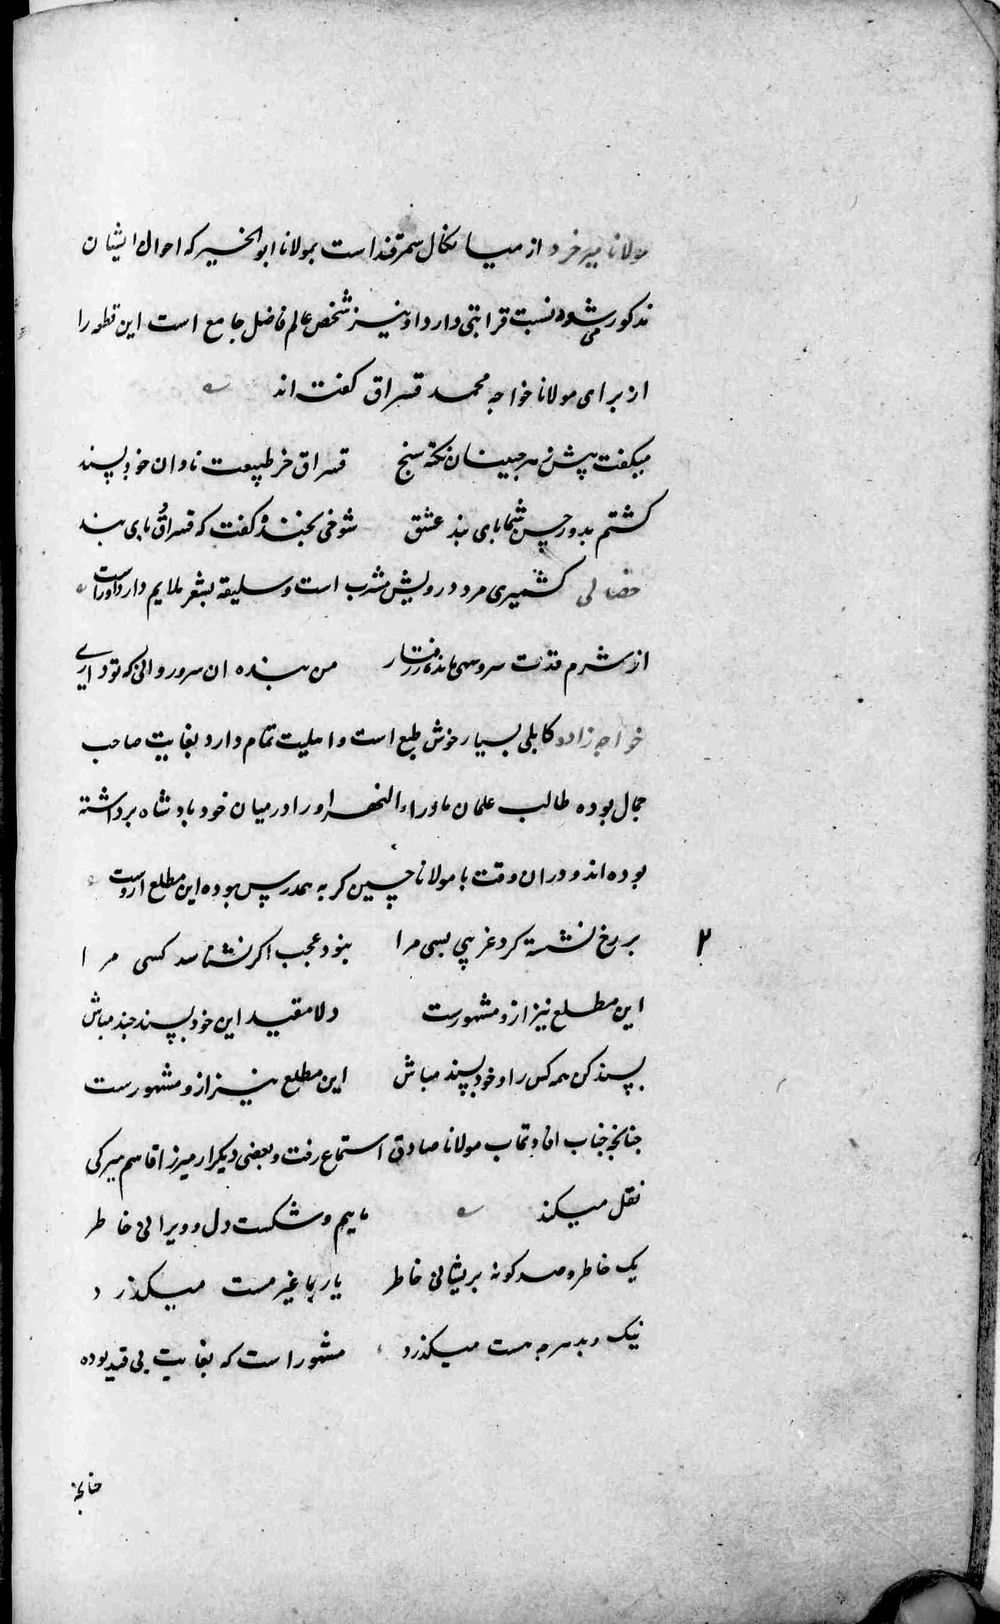 مولانا میر خرد از میا نکال سمرقند است بمولانا ابوالخیر که احوال ایشان
مذکور می شود نسبت قرابتی دارد او نیز شخص عالم فاضل جامع است این قطعه را
از برای مولانا خواجه محمد قسراق گفته اند
میگفت پیش زهره جبینان نکته سنج قسراق خر طبیعت نادان خود پسند
گشتم بدور حسن شما پای بند عشق شوخی بخندد و گفت که قسراق و پای بند
کشمیری مرد درویش مشرب است و سلیقه بشعر ملایم دارد او راست
از شرم قدت سرو سهی مانده ز رفتار من بنده آن سرو روانی که تو داری
خواجه زاده کابلی بسیار خوش طبع است و اهلیت تمام دارد بغایت صاحب
جمال بوده طالب علمان ماوراء النهر او را در میان خود پادشاه برداشته
بوده اند و در ان وقت با مولانا حسین کربه همدرس بوده این مطلع ازوست
بر رخ نشسته کرد غریبی بسی مرا نبود عجب اکر نشناسد کسی مرا
۲
این مطلع نیز ازو مشهورست دلا مقید این خود پسند چند مباش
پسند کن همه کس را و خود پسند مباش این مطلع نیز ازو مشهورست
چنانچه جناب افادتماب مولانا صادق استماع رفت و بعضی دیکر از میرزا قاسم میرکی
نقل میکند ماییم و شکست دل و ویرانی خاطر
یک خاطر و صد کونه پریشانی خاطر یار با غیر مست میکذرد
نیک و بد هرچه هست میکذرد مشهور است که بغایت بی قید بوده
چنانچه